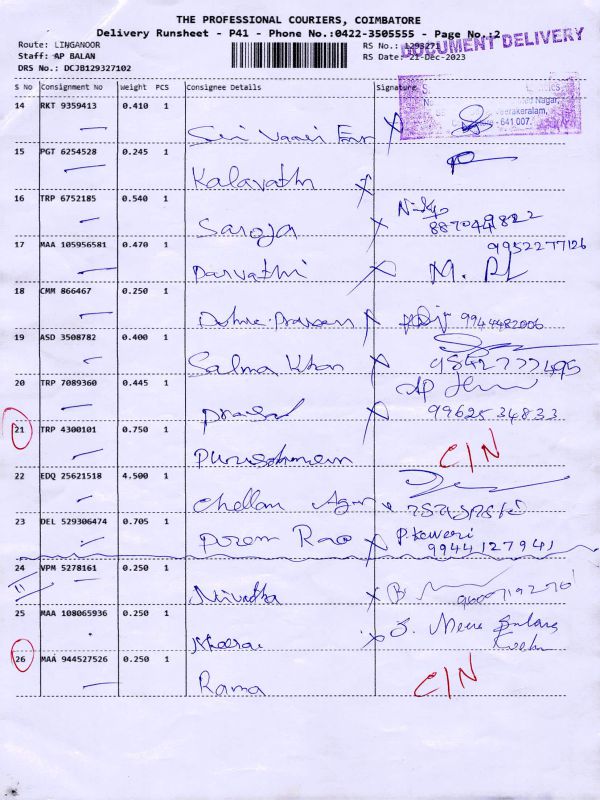 THE PROFESSIONAL COURIERS, COIMBATORE
Delivery Runsheet - P41 - Phone No.:0422-3505555 - Page No.:2
Route: LINGANOOR
RS No.: 1293271
DOCUMENT DELIVERY
Staff: AP BALAN
RS Date: 21-Dec-2023
DRS No.: DCJB129327102
S No Consignment No Weight PCS Consignee Details Signature
Nagar,
Veerakeralam,
- 641 007.
14 RKT 9359413 0.410 1
Sri Vaari
15 PGT 6254528 0.245 1
Kalavathi
16 TRP 6752185 0.540 1
Saroja
17 MAA 105956581 0.470 1 9952277126
Parvathi
18 CMM 866467 0.250 1
9944482006
19 ASD 3508782 0.400 1
Salma Khan
20 TRP 7089360 0.445 1
Prasad 9962534833
21 TRP 4300101 0.750 1
C/N
22 EDQ 25621518 4.500 1
Chellam
23 DEL 529306474 0.705 1
Prem Rao P. Kaweri
9944127941
24 VPM 5278161 0.250 1
Nivetha
25 MAA 108065936 0.250 1
26 MAA 944527526 0.250 1
Rama C/N